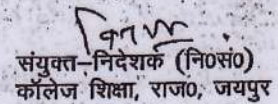 संयुक्त–निदेशक (नि0सं0)
कॉलेज शिक्षा, राज0, जयपुर